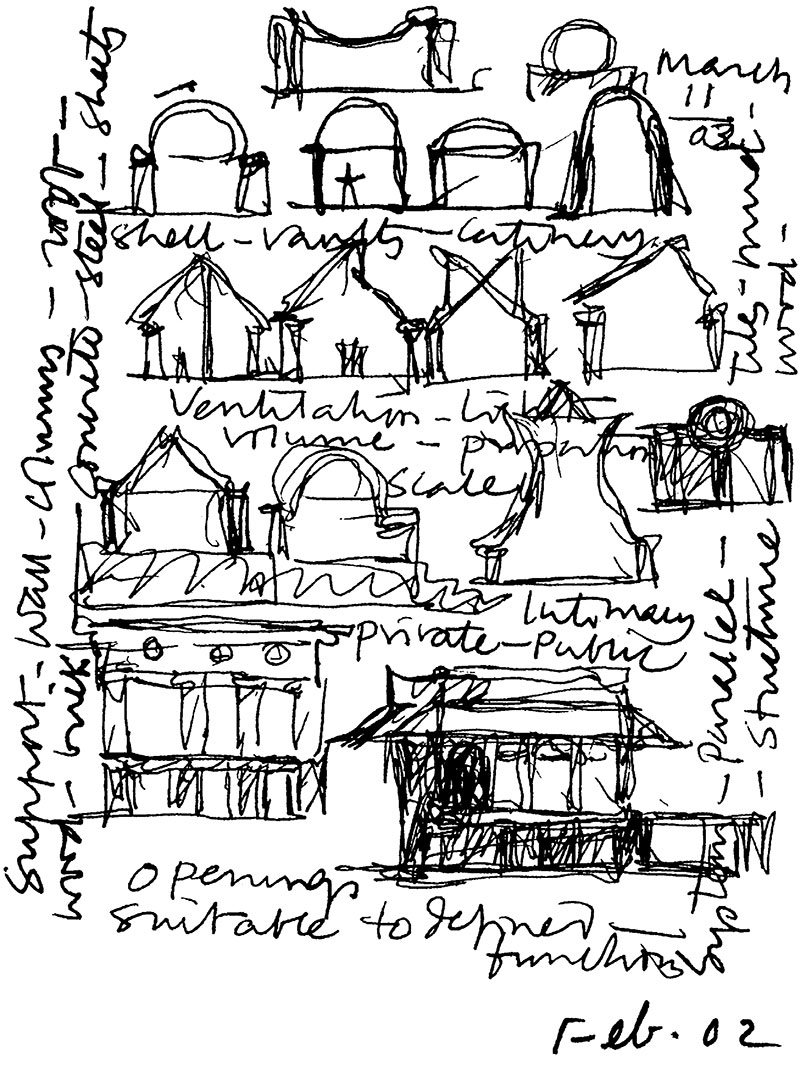 March
11
03
shell - vaults - catinery
Ventilation - light
volume - proportion
scale
Intimacy
private - public
openings
suitable to defined
functions
Feb. 02
Support - wall - columns - roof -
wood - brick - concrete - steel - sheets
Tiles - mud -
wood -
system - parallel -
- structure